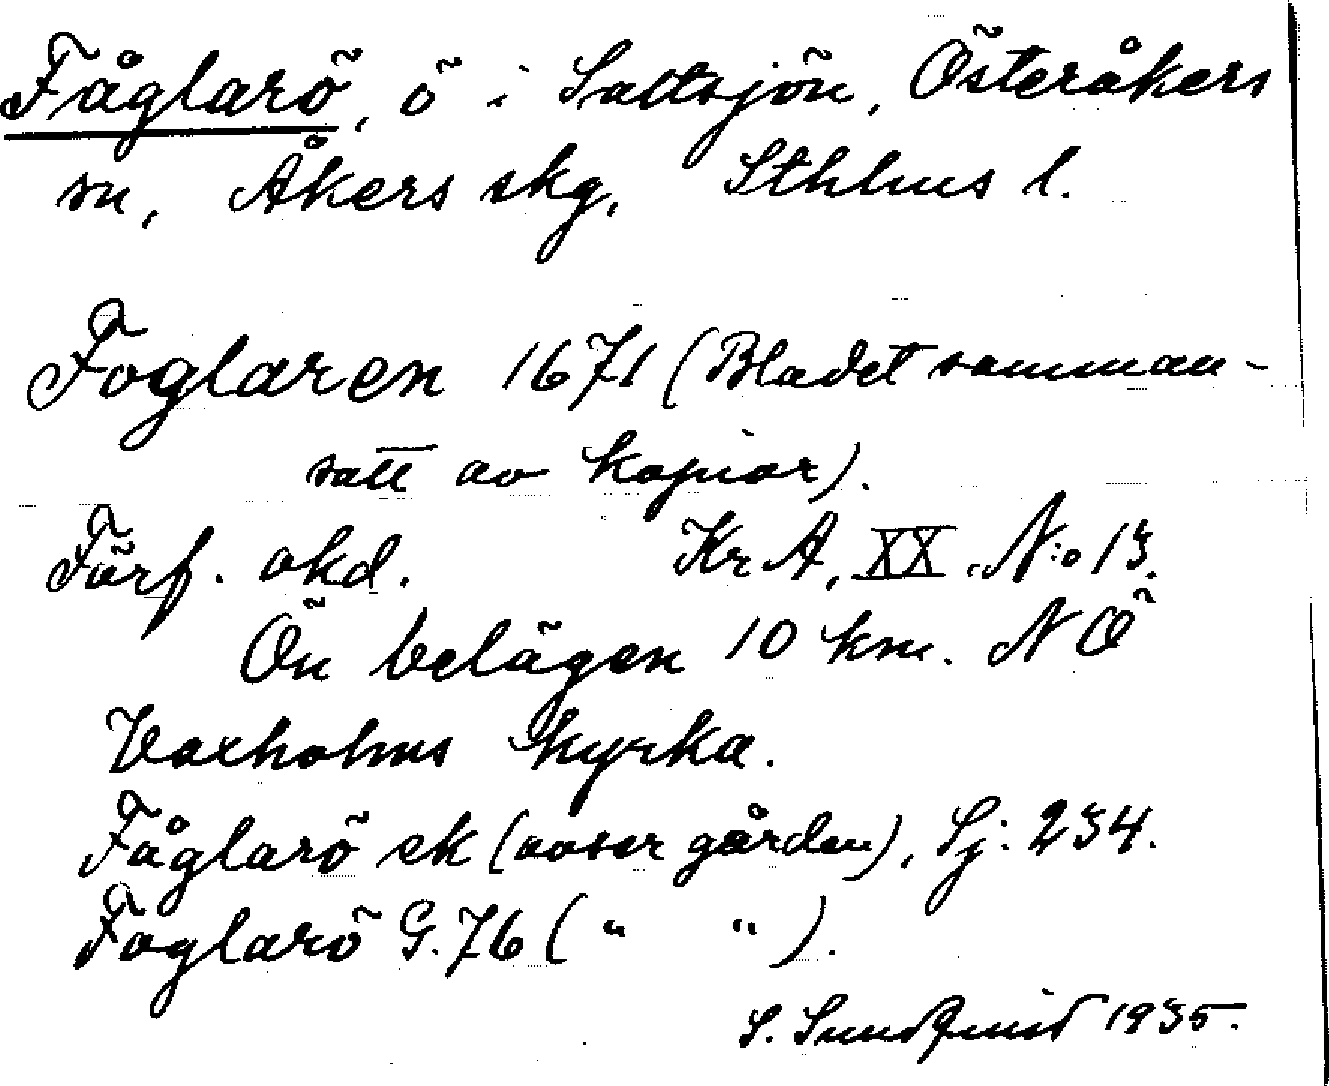 Fåglarö, ö i Saltsjön, Österåkers
sn, Åkers skg, Sthlms l.
Foglaren 1671 (Bladet samman-
satt av kopior).
Förf. okd. Kr A, XX. N:o 13.
Ön belägen 10 km. NÖ
Vaxholms kyrka.
Fåglarö ek (avser gården), Sj: 234.
Foglarö G. 76 ( " " ).
S. Sundqvist 1935.